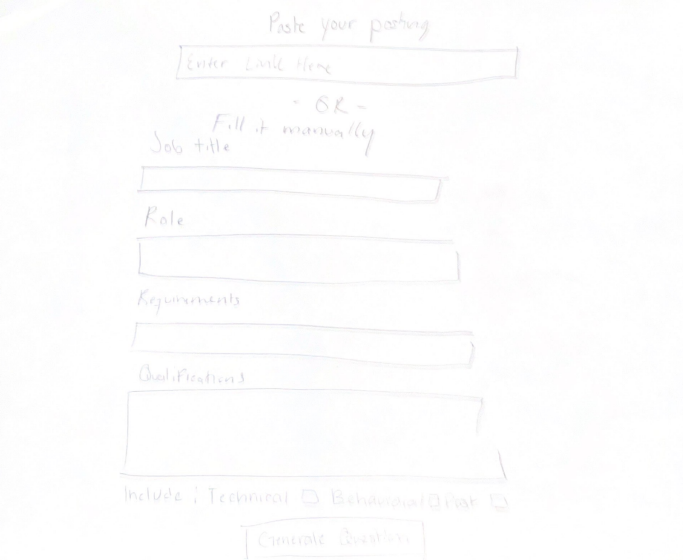 Paste your posting
Enter Link Here
- OR -
Fill it manually
Job title
Role
Requirements
Qualifications
Include : Technical Behavioral
Generate Question